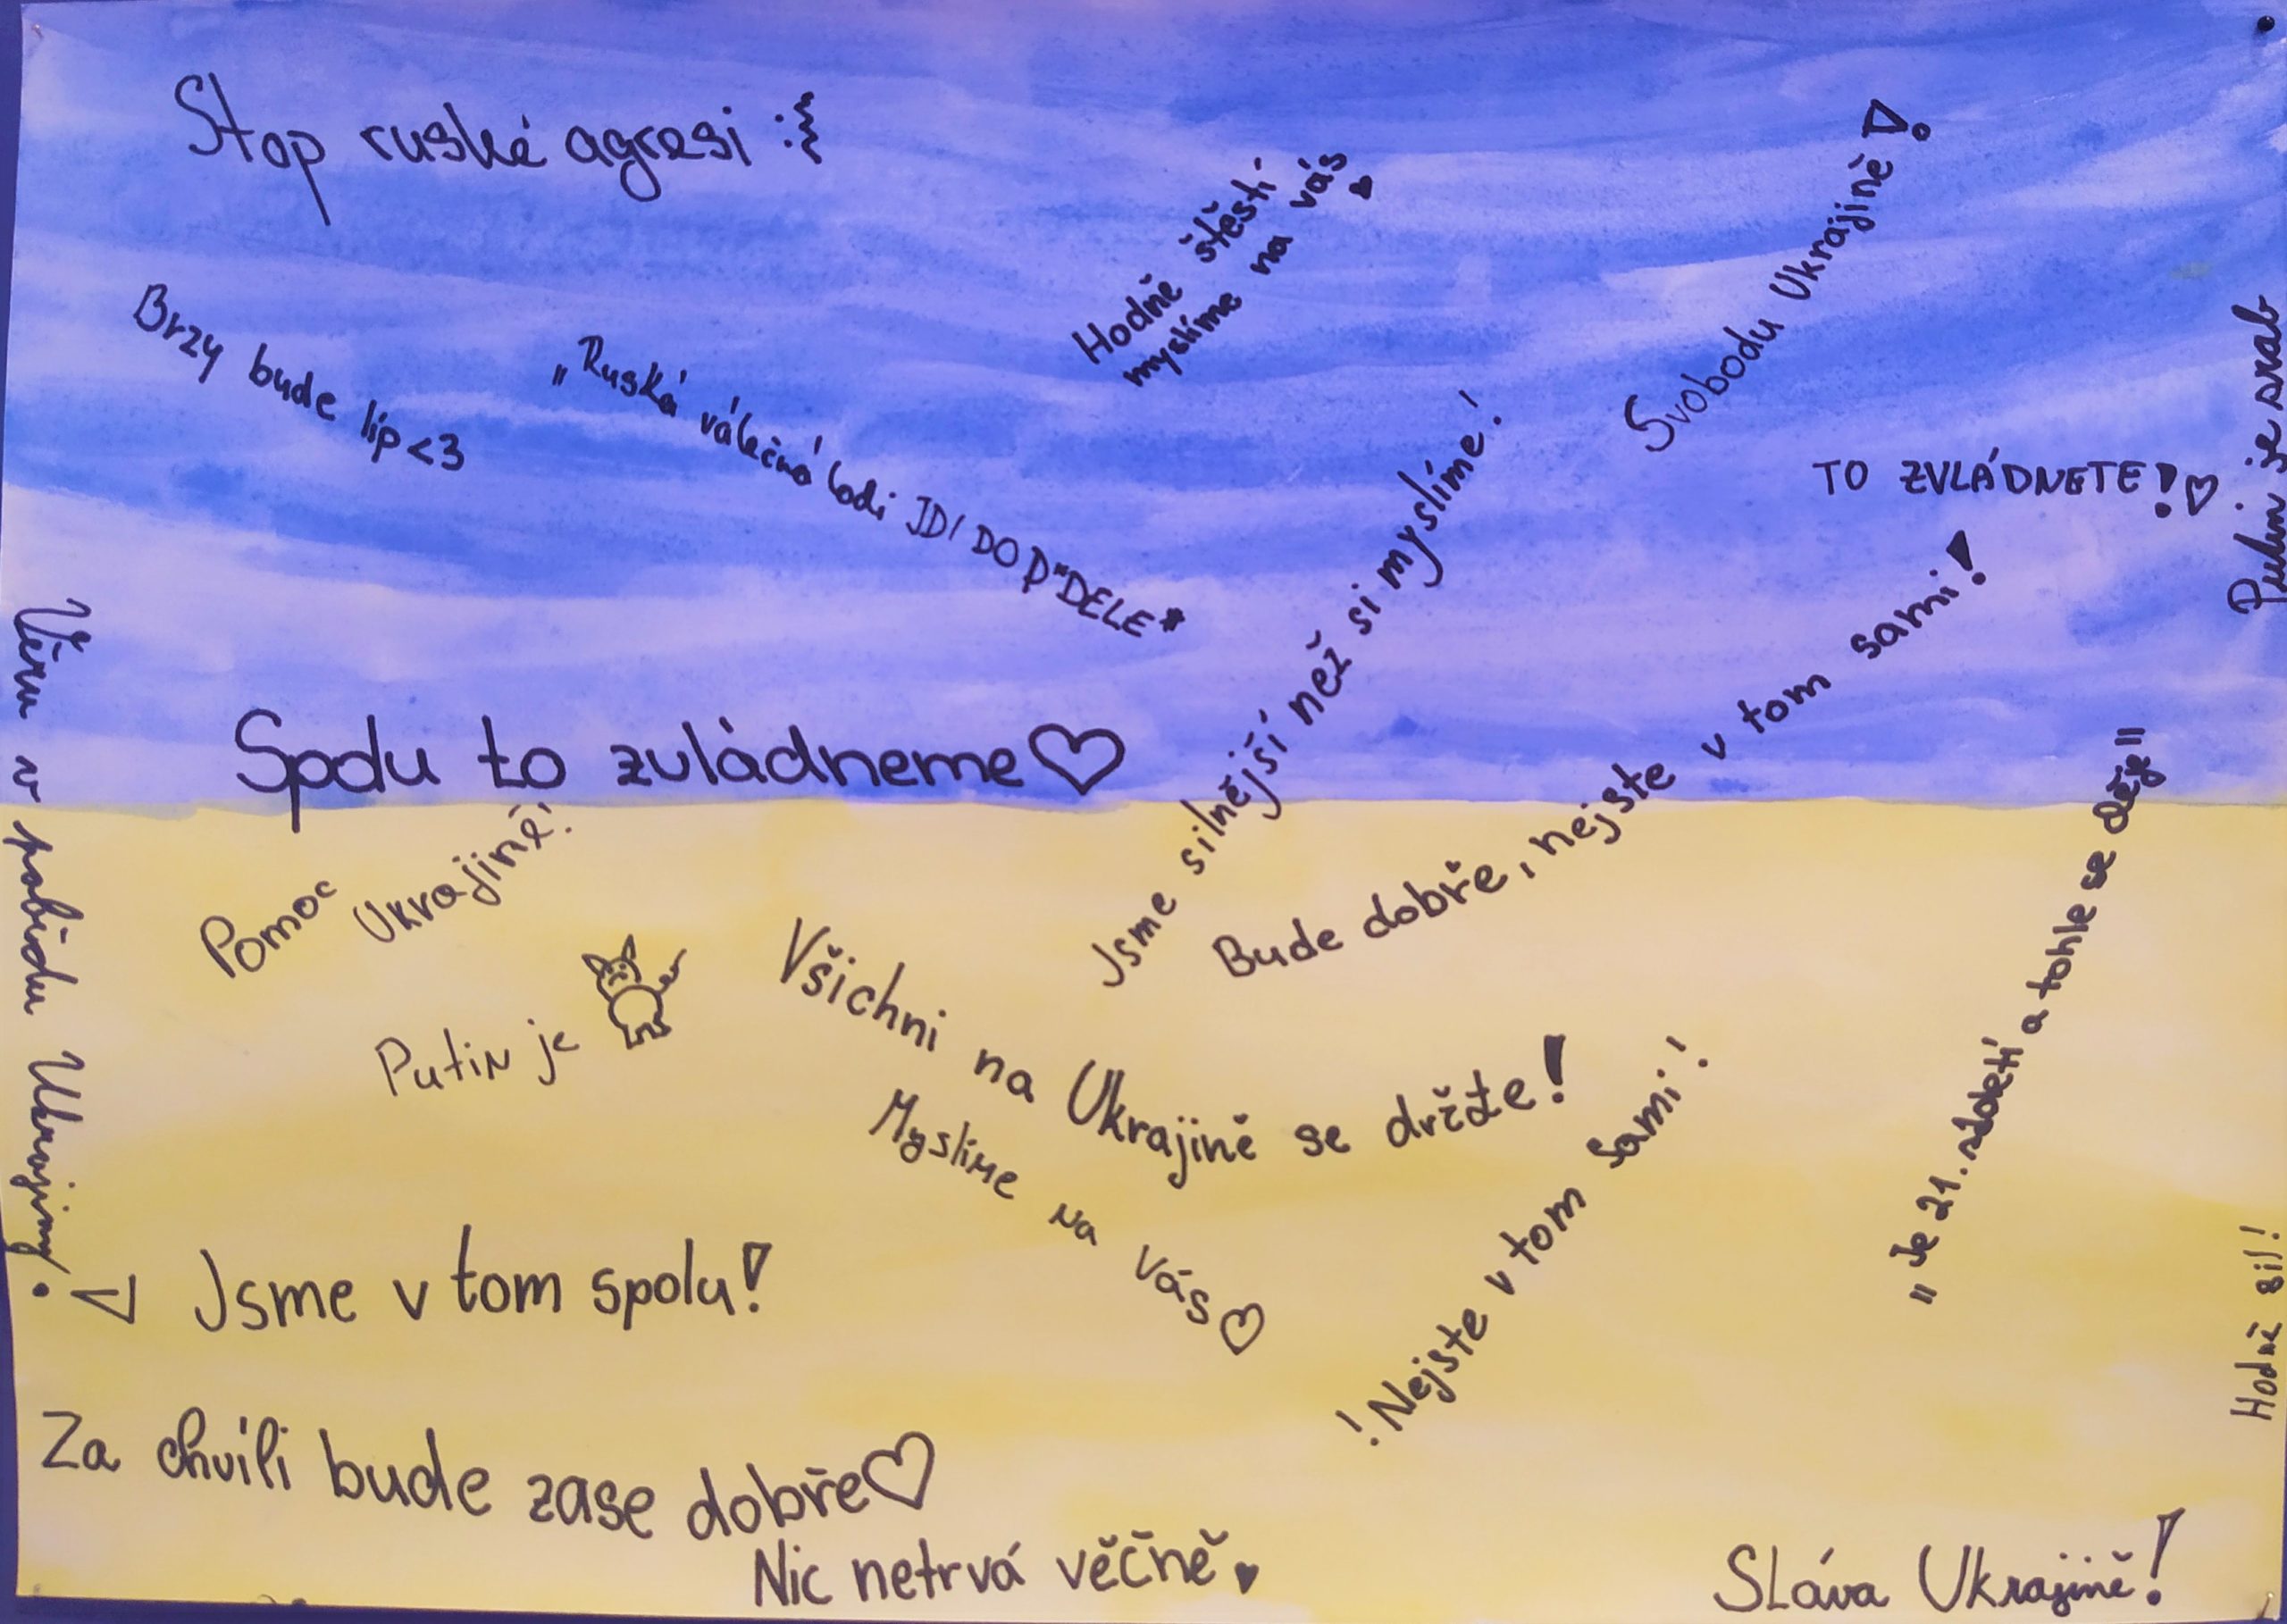 Stop ruské agresi :}
Hodně štěstí
myslíme na vás ♥
Svobodu Ukrajině!
Brzy bude líp <3
„Ruská válečná lodi JDI DO P*DELE*
TO ZVLÁDNETE! ♡
Putin je srab
Jsme silnější než si myslíme!
Bude dobře, nejste v tom sami!
Věřím v pobědu Ukrajiny!
Spolu to zvládneme ♡
Pomoc Ukrajině!
Putin je
Všichni na Ukrajině se držte!
Myslíme na Vás ♡
! Nejste v tom sami!
„Je 21. století a tohle se děje"
Hodně sil!
Jsme v tom spolu!
Za chvíli bude zase dobře ♡
Nic netrvá věčně ♥
Sláva Ukrajině!